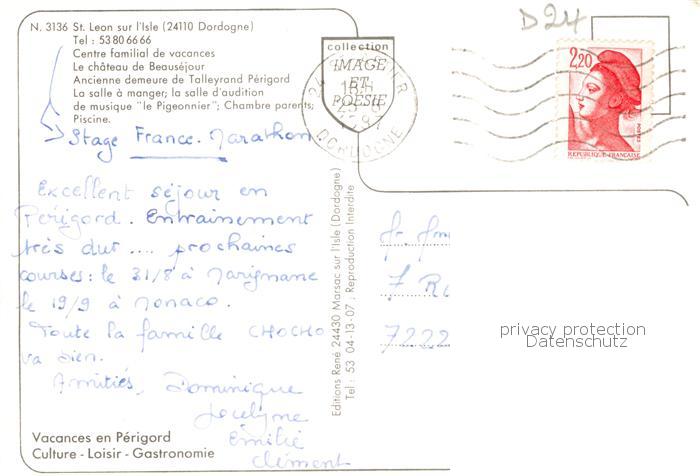 D24
N. 3136 St. Leon sur l'Isle (24110 Dordogne)
Tel : 53 80 66 66
Centre familial de vacances
Le château de Beauséjour
Ancienne demeure de Talleyrand Périgord
La salle à manger; la salle d'audition
de musique "le Pigeonnier"; Chambre parents;
Piscine.
collection
IMAGE
ET
POÉSIE
DORDOGNE
2,20
POSTES
REPUBLIQUE FRANÇAISE
Stage France Marathon
Excellent séjour en
Périgord. Entrainement
très dur .... prochaines
courses : le 31/8 à Marignane
le 19/9 à Monaco.
Toute la famille CHOCHO
va bien.
Amitiés, Dominique
Jocelyne
Emilie
Clément
Editions René 24430 Marsac sur l'Isle (Dordogne)
Tel : 53 04-13-07 ; Reproduction Interdite
7
7222
privacy protection
Datenschutz
Vacances en Périgord
Culture - Loisir - Gastronomie